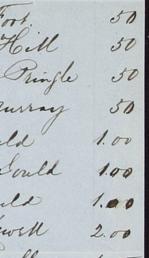 Foot. 50
Hill 50
Pringle 50
Murray 50
uld 1.00
Gould 1.00
uld 1.00
well 2.00